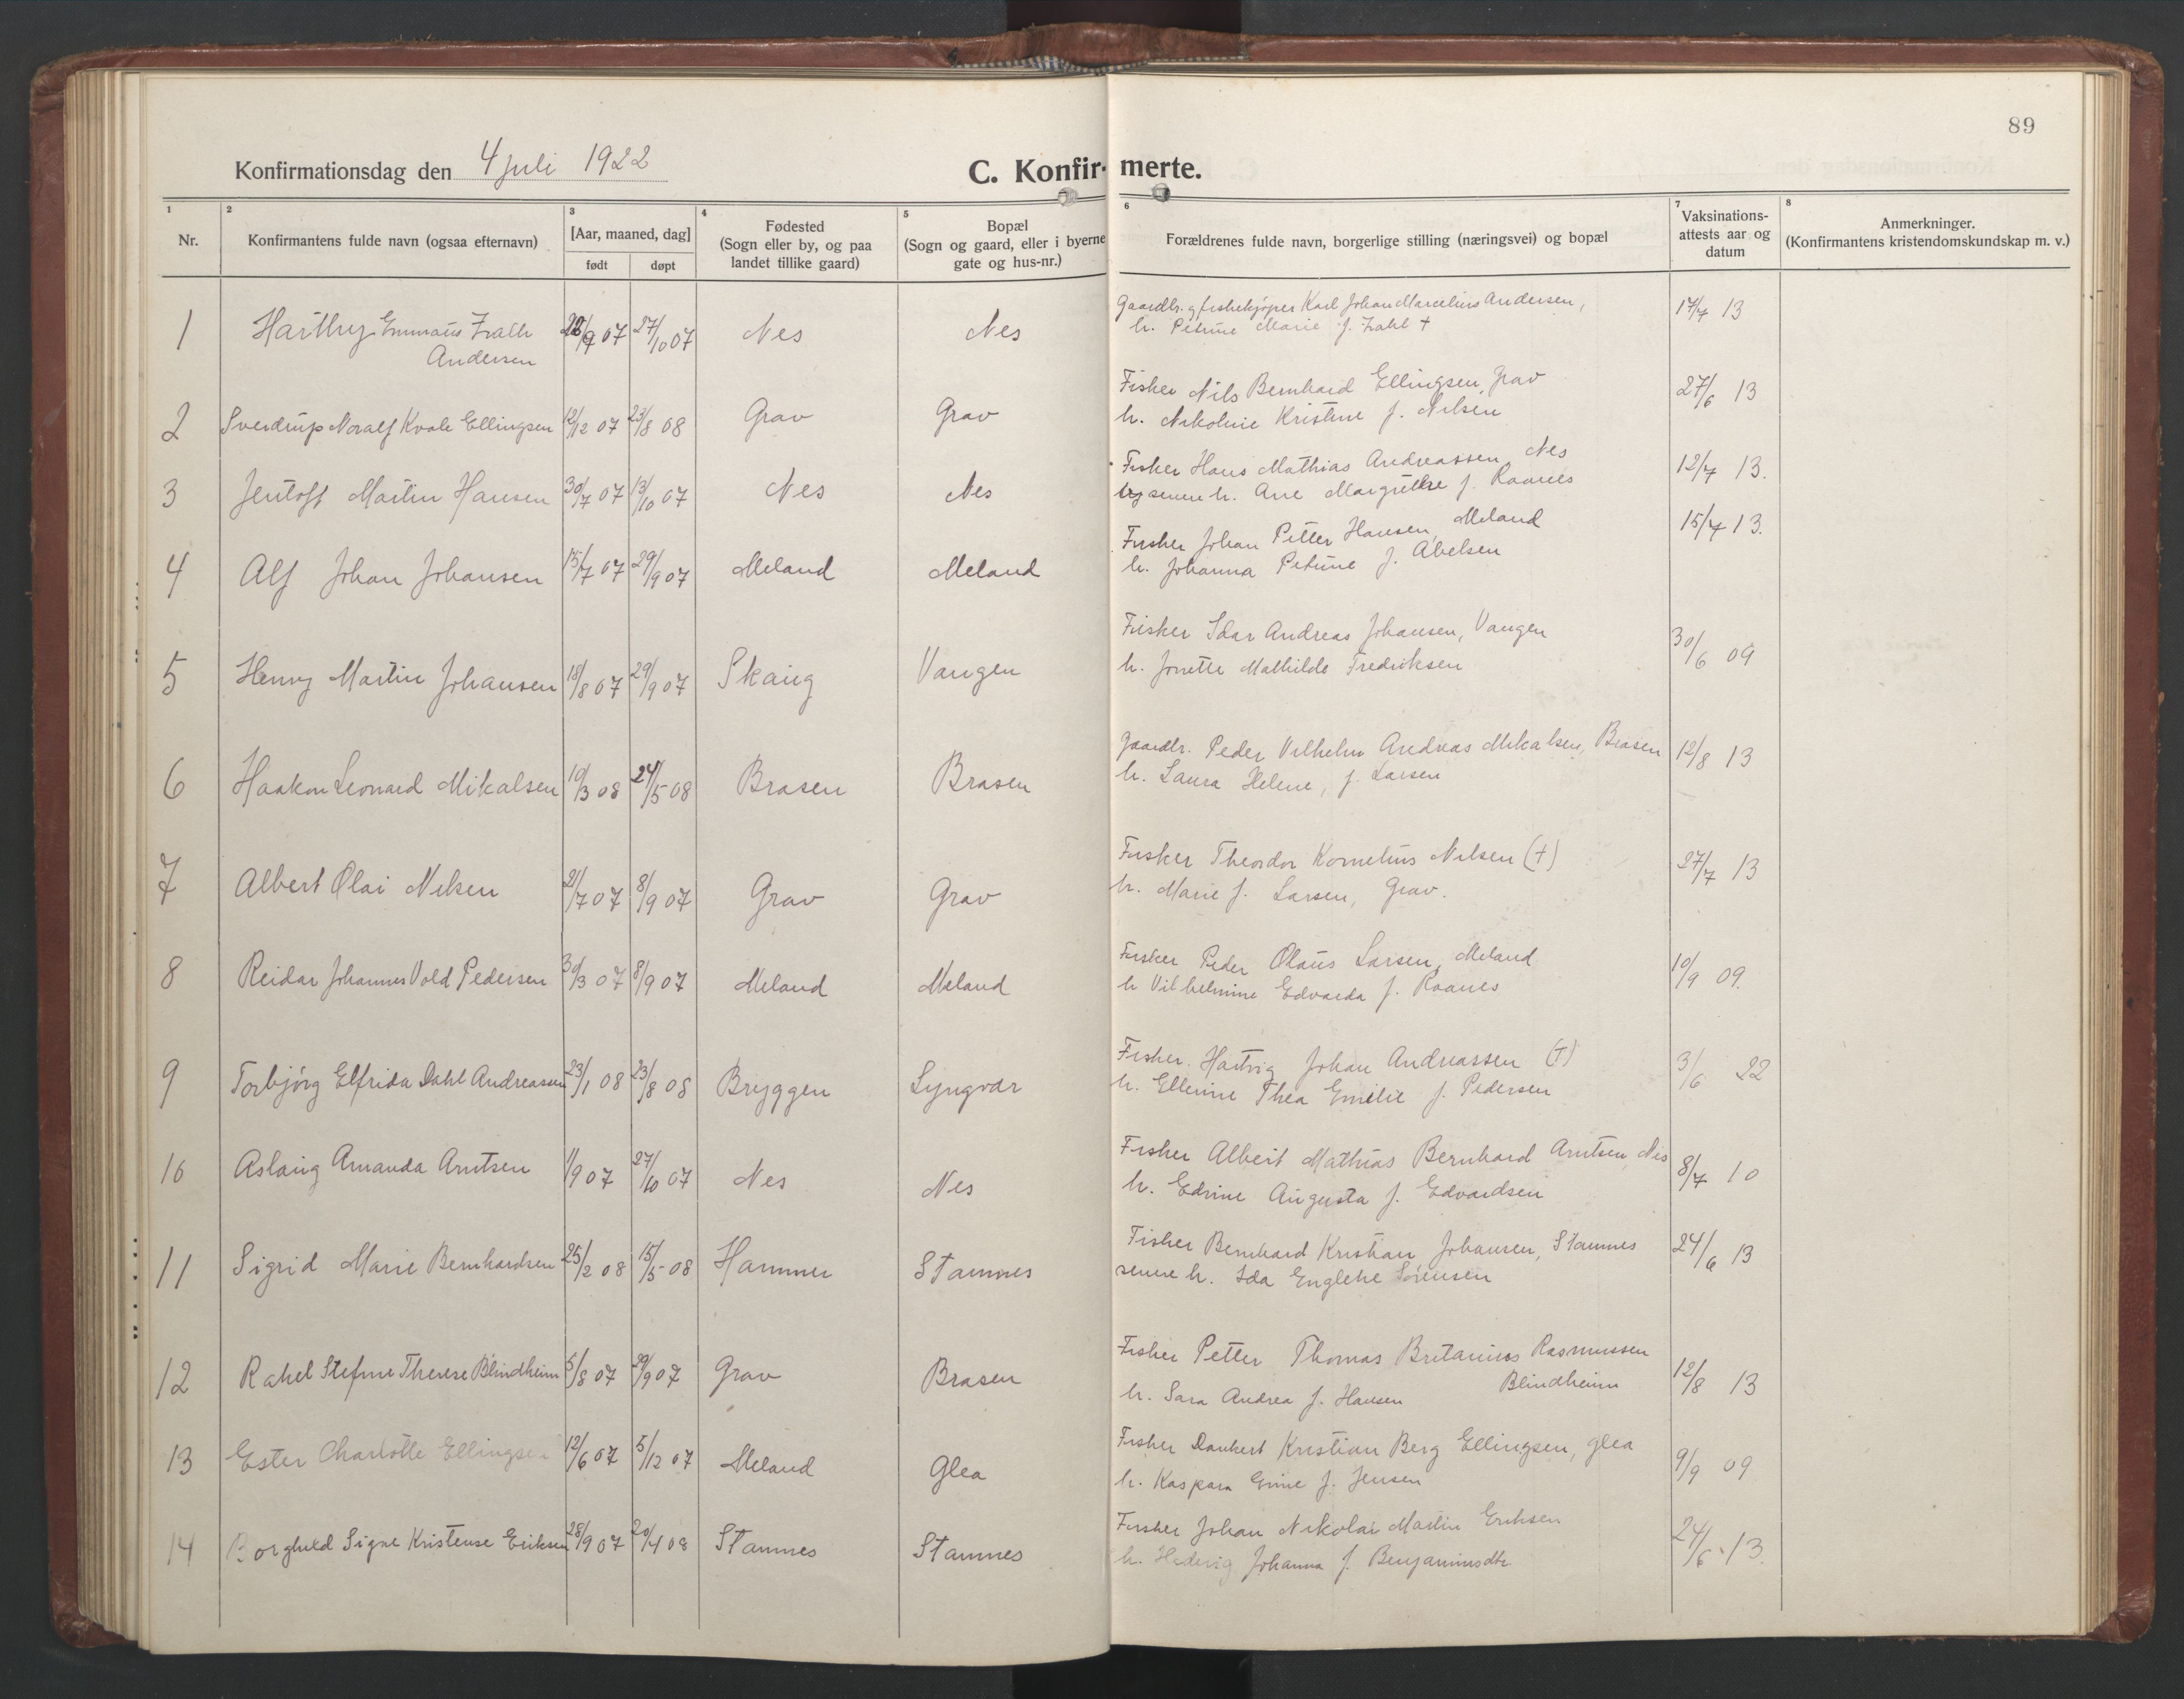 89
Konfirmationsdag den 4 juli 1922
C. Konfir- merte.
1 2 3 4 5 6 7 8
Nr.
Konfirmantens fulde navn (ogsaa efternavn)
[Aar, maaned, dag]
født døpt
Fødested
(Sogn eller by, og paa
landet tillike gaard)
Bopæl
(Sogn og gaard, eller i byerne
gate og hus-nr.)
Forældrenes fulde navn, borgerlige stilling (næringsvei) og bopæl
Vaksinations-
attests aar og
datum
Anmerkninger.
(Konfirmantens kristendomskundskap m. v.)
1 Emmaüs 27/10 07 Nes Nes Karl Johan Marcelius Andersen, 17/7 13
Andersen h. Petrine Marie f. Zahl †
2 Sverdrup Noralf Kvale Ellingsen 12/12 07 23/8 08 Grav Grav Fisker Nils Bernhard Ellingsen, Grav 27/6 13
h. Nikoline Kristine f. Nilsen
3 Jentoft Martin Hansen 30/7 07 13/10 07 Nes Nes Fisker Hans Mathias Andreassen, Nes 12/7 13.
senere h. Ane Margrethe f. Raanes
4 Alf Johan Johansen 15/7 07 29/9 07 Meland Meland Fisker Johan Petter Hansen, Meland 15/7 13.
h. Johanna Petrine f. Abelsen
5 Henry Martin Johansen 18/8 07 29/9 07 Skaug Vangen Fisker Idar Andreas Johansen, Vangen 30/6 09
h. Jonette Mathilde Fredriksen
6 Haakon Leonard Mikalsen 10/3 08 24/5 08 Brasen Brasen Gaardbr. Peder Vilhelm Andreas Mikalsen, Brasen 12/8 13
h. Laura Helene, f. Larsen
7 Albert Olai Nilsen 21/7 07 8/9 07 Grav Grav Fisker Theodor Kornelius Nilsen (†) 27/7 13
h. Marie f. Larsen, Grav.
8 Reidar Johannes Vold Pedersen 30/3 07 8/9 07 Meland Meland Fisker Peder Olaüs Larsen, Meland 10/9 09.
h Vilhelmine Edvarda f. Raanes
9 Torbjørg Elfrida Dahl Andreassen 23/1 08 23/8 08 Bryggen Lyngvær Fisker Hartvig Johan Andreassen (†) 3/6 22
h. Ellerine Thea Emilie f. Pedersen
10 Aslaug Amanda Arntsen 1/9 07 27/10 07 Nes Nes Fisher Albert Mathias Bernhard Arntsen, Nes 8/7 10
h. Edrine Augusta f. Edvardsen
11 Sigrid Marie Bernhardsen 25/2 08 15/5 08 Hammer Stamnes Fisher Bernhard Kristian Johansen, Stamnes 24/6 13
senere h. Ida Sørensen
12 Rahel Stefine Therese Blindheim 5/8 07 29/9 07 Grav Brasen Fisher Petter Thomas Britanius Rasmussen 12/8 13
Blindheim
h. Sara Andrea f. Hansen
13 Ester Charlotte Ellingsen 12/6 07 5/12 07 Meland Glea Fisher Dankert Kristian Berg Ellingsen, Glea 9/9 09
h. Kaspara f. Jensen
14 Borghild Signe Kristense Eriksen 28/9 07 20/4 08 Stamnes Stamnes Fisker Johan Nikolai Martin Eriksen 24/6 13.
h. Hedevig Johanna f. Benjaminsdtr